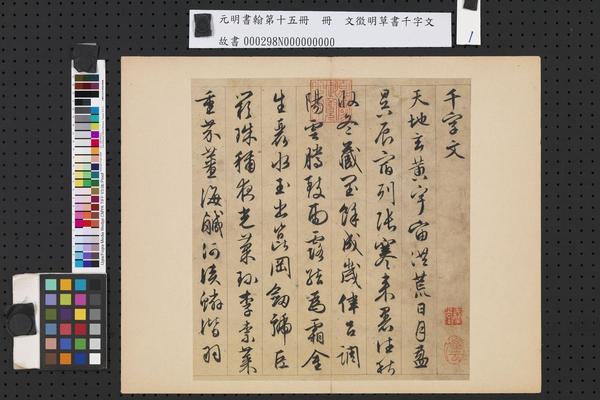 元明書翰第十五冊 冊 文徵明草書千字文
故書 000298N000000000
1
千字文
天地玄黃宇宙洪荒日月盈
昃辰宿列張寒來暑往秋
收冬藏閏餘成歲律呂調
陽雲騰致雨露結為霜金
生麗水玉出崑岡劍號巨
闕珠稱夜光菓珍李柰菜
重芥薑海鹹河淡鱗潛羽